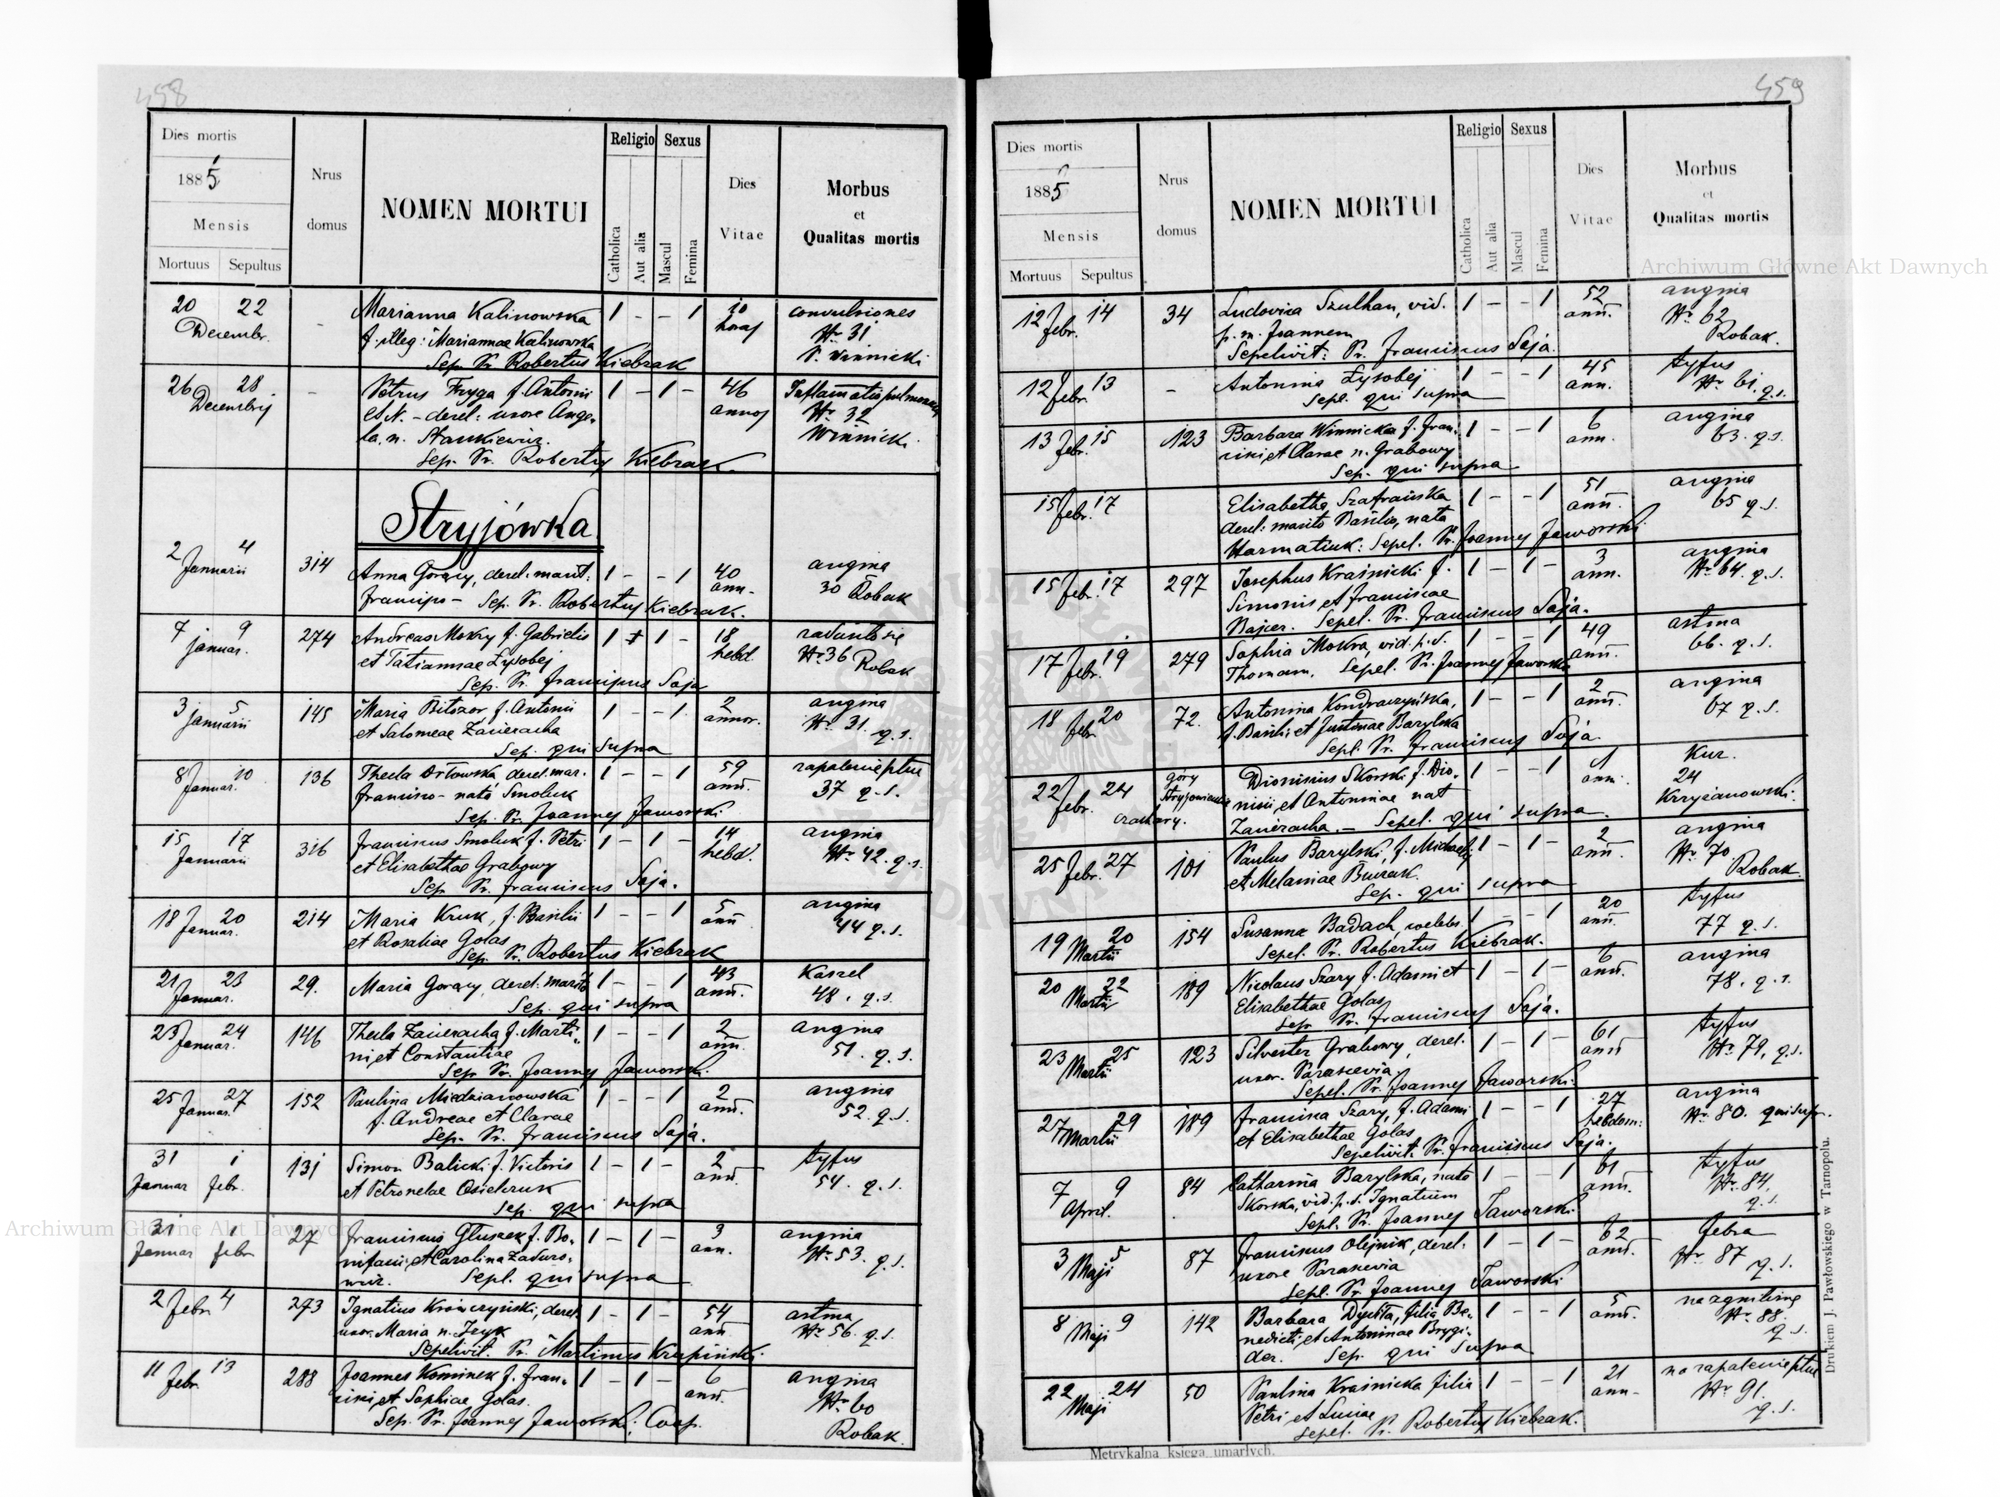 458
Dies mortis
1885
Mensis
Mortuus Sepultus
Nrus
domus
NOMEN MORTUI
Religio
Catholica
Aut alia
Sexus
Mascul
Femina
Dies
Vitae
Morbus
et
Qualitas mortis
20 22 Marianna Kalinowska 1 - - 1 10 convulsiones
Decembr. - f. illeg: Mariannae Kalinowska horas Nr 31
Sep. Pr. Robertus Kiebzak Winnicki
26 28 - Petrus Fryga f. Antonii 1 - 1 - 46
Decembrij et N. - derel: uxore Ange- annos Nr 32
la, n. Stankiewicz. Winnicki.
Sep. Pr. Robertus Kiebzak
Stryjówka
2 4 314 Anna Gorący, derel. marit: 1 - - 1 40 angina
Januarii Sep. Pr. Robertus Kiebzak. ann. 30 Robak
7 9 274 Andreas Mokry f. Gabrielis 1 + 1 - 18
Januar. et Tatiannae Łysobej hebd. Nr 36 Robak
Sep. Pr. Saja
3 5 145 Maria f. Antonii 1 - - 1 2 angina
Januarii et Salomeae Zawieracha annor. Nr 31. q.s.
Sep. qui supra
8 10 136 Thecla Orłowska derel. mar. 1 - - 1 59
Januar. Francisco - nata Smoluk ann. 37 q.s.
Sep. Pr. Joannes Jaworski
15 17 316 Franciscus Smoluk f. Petri 1 - 1 - 14 angina
Januarii et Elisabethae Grabowy hebd. Nr 42. q.s.
Sep. Pr. Franciscus Saja.
18 20 214 Maria Kruk, f. Basilii 1 - - 1 5 angina
Januar. et Rosaliae Golas ann. 44 q.s.
Sep. Pr. Robertus Kiebzak
21 23 29. Maria Gorący, derel. marito 1 - - 1 43 Kaszel
Januar. Sep. qui supra ann. 48. q.s.
23 24 146 Thecla Zawieracha f. Marti- 1 - - 1 2 angina
Januar. ni et Constantiae ann. 51. q.s.
Sep. Pr. Joannes Jaworski.
25 27 152 Paulina Miedzianowska 1 - - 1 2 angina
Januar. f. Andreae et Clarae ann. 52. q.s.
Sep. Pr. Franciscus Saja.
31 1 131 Simon Balicki f. Victoris 1 - 1 - 2 tyfus
Januar febr. et Petronelae ann. 54. q.s.
Sep. qui supra
31 1 27 Franciscus Głuszek f. Bo- 1 - 1 - 3 angina
Januar febr nifacii, et Carolina Zaduro- ann. Nr 53. q.s.
wicz. Sepl. qui supra
2 febr 4 273 Ignatius Krówczyński, derel 1 - 1 - 54 astma
uxor Maria n. ann. Nr 56. q.s.
Sepelivit. Pr. Martinus Krupiński.
11 febr. 13 288 Joannes Kominek f. Fran- 1 - 1 - 6 angina
cisci, et Sophiae Golas. ann. Nr 60
Sep. Pr. Joannes Jaworski; Coop. Robak.
459
Dies mortis
1885
Mensis
Mortuus Sepultus
Nrus
domus
NOMEN MORTUI
Religio
Catholica
Aut alia
Sexus
Mascul
Femina
Dies
Vitae
Morbus
et
Qualitas mortis
12 febr. 14 34 Ludovica Szulhan, vid. 1 - - 1 52 angina
p. m. Joannem ann. Nr 62
Sepelivit: Pr. Franciscus Saja. Robak.
12 febr. 13 - Antonina Łysobej 1 - - 1 45 tyfus
Sepl. qui supra ann. Nr 61. q.s.
13 febr. 15 123 Barbara Winnicka f. Fran- 1 - - 1 6 angina
cisci, et Clarae n. Grabowy ann. 63. q.s.
Sep. qui supra
15 febr. 17 Elisabetha Szafrańska 1 - - 1 51 angina
derel: marito Basilio, nata ann. 65 q.s.
Harmatiuk: Sepel. Pr. Joannes Jaworski.
15 febr. 17 297 Josephus Kraśnicki f. 1 - 1 - 3 angina
Simonis, et Franciscae ann. Nr 64. q.s.
Bajcer. Sepel. Pr. Franciscus Saja.
17 febr. 19 279 Sophia Mokra, vid. p.d. 1 - - 1 49 astma
Thomam. Sepel. Pr. Joannes Jaworski ann. 66. q.s.
18 febr. 20 72. Antonina Kondraczyńska, 1 - - 1 2 angina
f. Basilii, et Justinae Barylska ann. 67 q.s.
Sepl. Pr. Franciscus Saja
22 febr. 24 góry Dionisius Skorski f. Dio- 1 - - 1 1 Kur.
nisii, et Antoninae nat ann. 24
Zawieracha. - Sepel. qui supra. Krzyżanowski.
25 febr. 27 101 Paulus Barylski, f. Michaelis 1 - 1 - 2 angina
et Melaniae Burak. ann. Nr 70
Sep. qui supra Robak.
19 20 154 Susanna Badach, coelebs 1 - - 1 20 tyfus
Martii Sepel. Pr. Robertus Kiebzak. ann. 77 q.s.
20 22 189 Nicolaus Szary f. Adami et 1 - 1 - 6 angina
Martii Elisabethae Golas ann. 78. q.s.
Sep. Pr. Franciscus Saja.
23 25 123 Silvester Grabowy, derel. 1 - 1 - 61 tyfus
Martii uxor. Parascevia ann Nr 79, q.s.
Sepel. Pr. Joannes Jaworski.
27 29 189 Francisca Szary, f. Adami 1 - - 1 27 angina
Martii et Elisabethae Golas hebdom: Nr 80. qui supr.
Sepelivit. Pr. Franciscus Saja.
7 9 84 Catharina Barylska, nata 1 - - 1 61 tyfus
April. Skorska, vid. p.d. Ignatium ann. Nr 84,
Sepl. Pr. Joannes Jaworski. q.s.
3 5 87 Franciscus Olejnik, derel. 1 - 1 - 62 febra
Maji uxore Parascevia ann. Nr 87 q.s.
Sepl. Pr. Joannes Jaworski
8 Maji 9 142 Barbara Dychta, filia Be- 1 - - 1 5 na zgniliznę
nedicti, et Antoninae Brygi- ann. Nr 88.
der. Sep. qui supra q.s.
22 24 50 Paulina Kraśnicka filia 1 - - 1 21 na zapalenie płuc
Maji Petri, et Luciae ann. Nr 91.
Sepel. Pr. Robertus Kiebzak. q.s.
Metrykalna księga umarłych.
Drukiem J. Pawłowskiego w Tarnopolu.
Archiwum Główne Akt Dawnych
Archiwum Główne Akt Dawnych